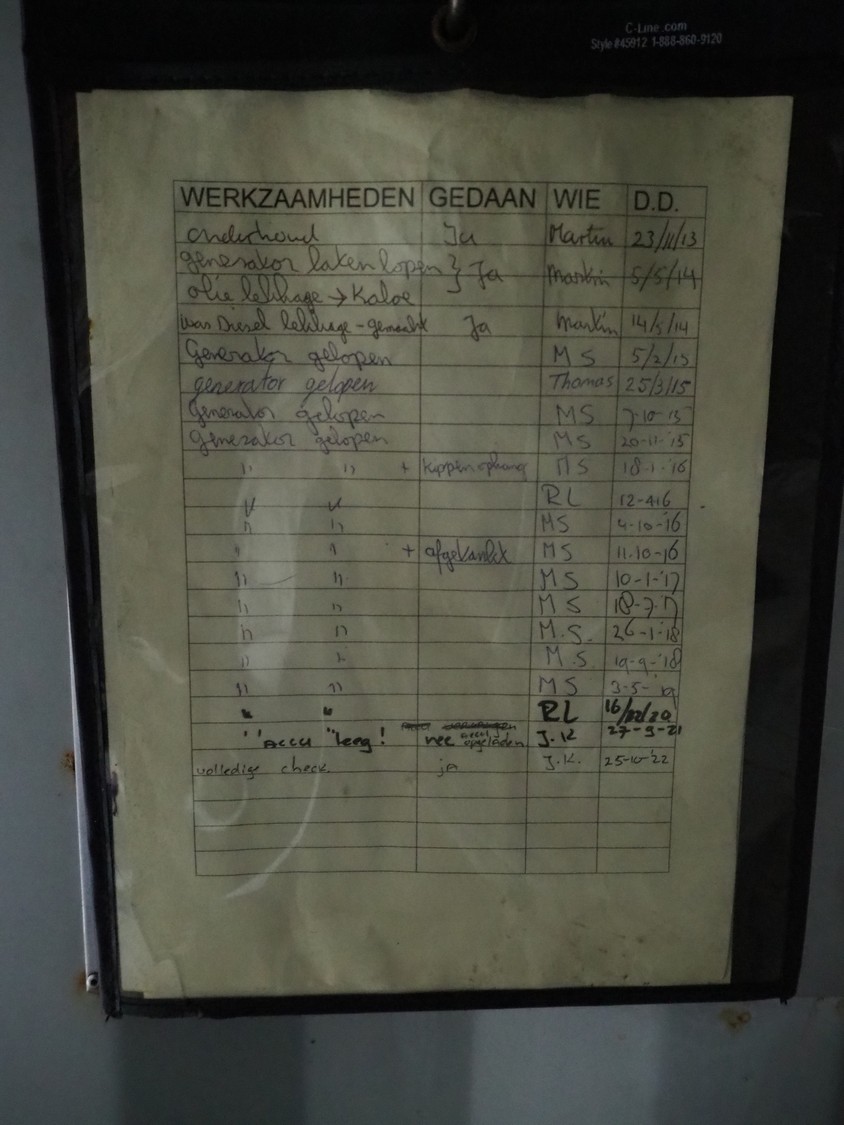 C-Line.com
Style #45912 1-888-860-9120
WERKZAAMHEDEN GEDAAN WIE D.D.
onderhoud Ja Martin 23/11/13
generator laten lopen } Ja Martin 5/5/14
olie lekkage → Kaloe
was Diesel lekkage - gemaakt Ja Martin 14/5/14
Generator gelopen MS 5/2/15
generator gelopen Thomas 25/3/15
Generator gelopen MS 7-10-15
Generator gelopen MS 20-11-'15
" " + MS 18-1-'16
RL 12-416
" " MS 4-10-'16
" " + afgetankt MS 11-10-16
" " MS 10-1-'17
" " MS 18-7-'17
" " M.S. 26-1-'18
" " M.S. 19-9-'18
" " MS 3-5-'19
" " RL 16/12/20
" "Accu "leeg! nee accu opgeladen J.K 27-9-21
volledige check. ja J.K. 25-10-'22